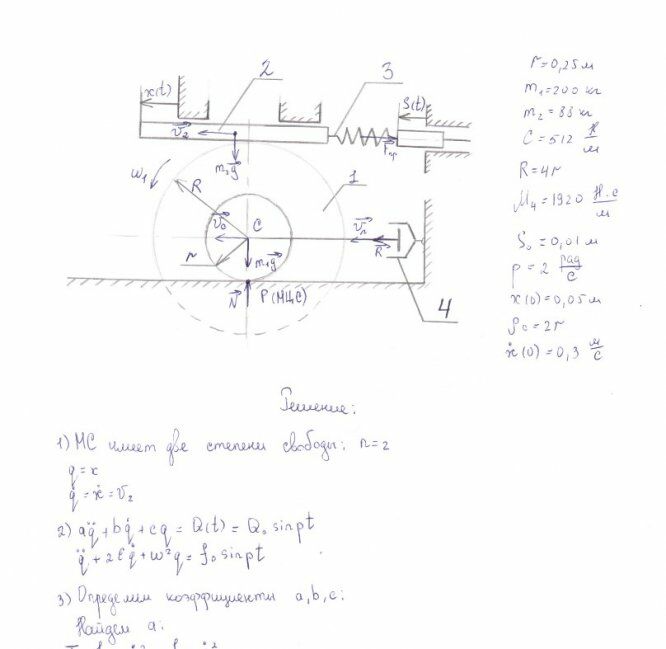 2
3
x(t)
S(t)
V₂
m₂g
Fпр
1
ω₁
R
V₀
C
Vп
R
r
m₁g
N
P(МЦС)
4
r=0,25 м
m₁=200 кг
m₂=88 кг
C=512 Н/м
R=4r
μ₄=1920 Н·с/м
S₀=0,01 м
p=2 рад/с
x(0)=0,05 м
ρc=2r
ẋ(0)=0,3 м/с
Решение:
1) МС имеет две степени свободы: n=2
q=x
q̇=ẋ=V₂
2) aq̈+bq̇+cq=Q(t)=Q₀ sinpt
q̈+2εq̇+ω²q=f₀ sinpt
3) Определим коэффициенты a,b,c:
Найдем a: